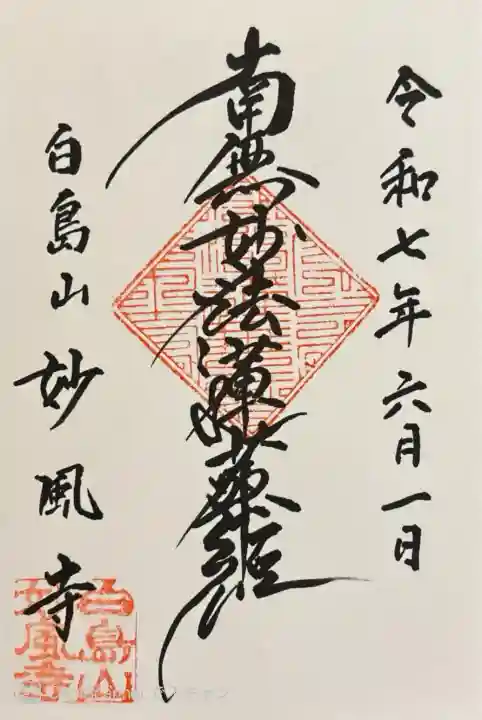 令和七年六月一日
南無妙法蓮華經
白島山 妙風寺
白島山
妙風寺